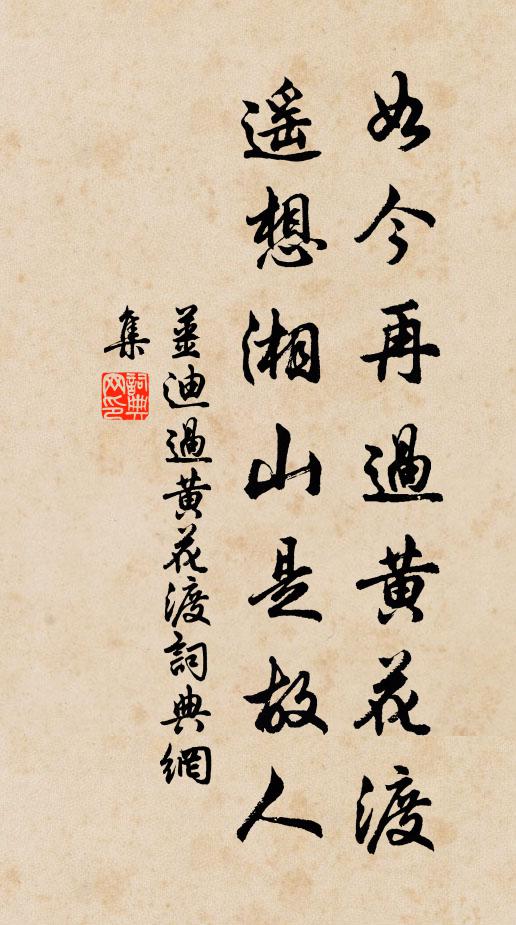 如今再過黄花渡
遥想湘山是故人
薑迪過黄花渡詞典網
集
詞典
网印